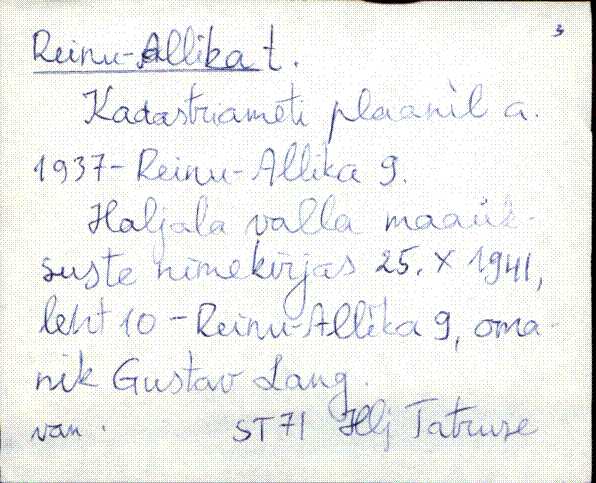 3
Reinu-Allika t.
Kadastriameti plaanil a.
1937 - Reinu-Allika 9.
Haljala valla maaük-
suste nimekirjas 25. X 1941,
leht 10 - Reinu-Allika 9, oma-
nik Gustav Lang.
van. ST 71 Hlj Tatruse